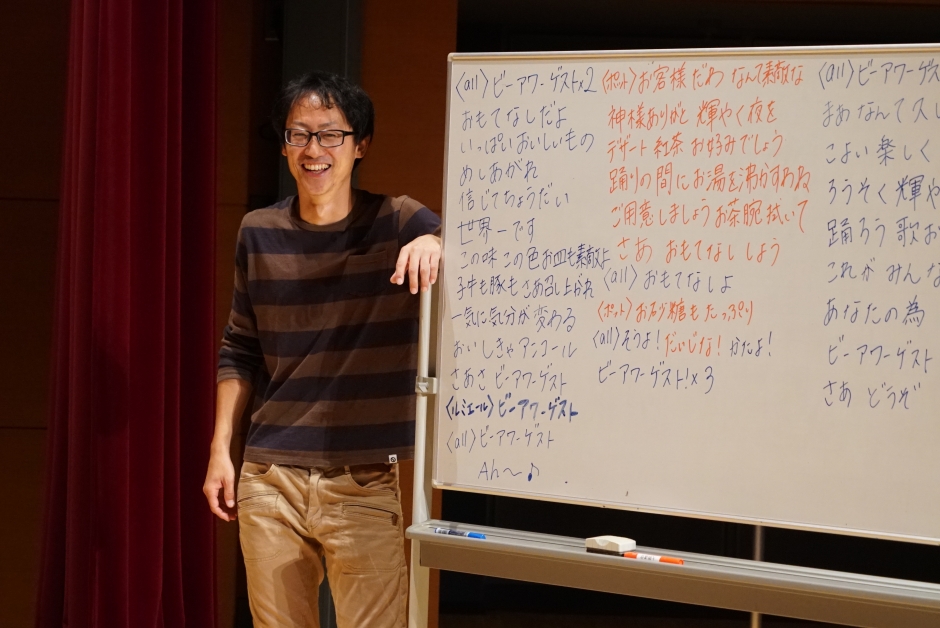 〈all〉ビーアワーゲスト×2
おもてなしだよ
いっぱいおいしいもの
めしあがれ
信じてちょうだい
世界一です
この味 この色 お皿も素敵よ
子牛も豚も さあ召し上がれ
一気に気分が変わる
おいしきゃアンコール
さあさ ビーアワーゲスト
〈ルミエール〉ビーアワーゲスト
〈all〉ビーアワーゲスト
Ah〜♪
〈ポット〉お客様だわ なんて素敵な
神様ありがと 輝やく夜を
デザート 紅茶 お好みでしょう
踊りの間にお湯を沸かすわね
ご用意しましょうお茶腕拭いて
さあ おもてなし しよう
〈all〉おもてなしよ
〈ポット〉お砂糖も たっぷり
〈all〉そうよ！だいじな！かたよ！
ビーアワーゲスト!×3
〈all〉ビーアワーゲス
まあなんてス
こよい 楽しく
ろうそく 輝や
踊ろう 歌お
これが みんな
あなたの為
ビーアワーゲスト
さあ どうぞ